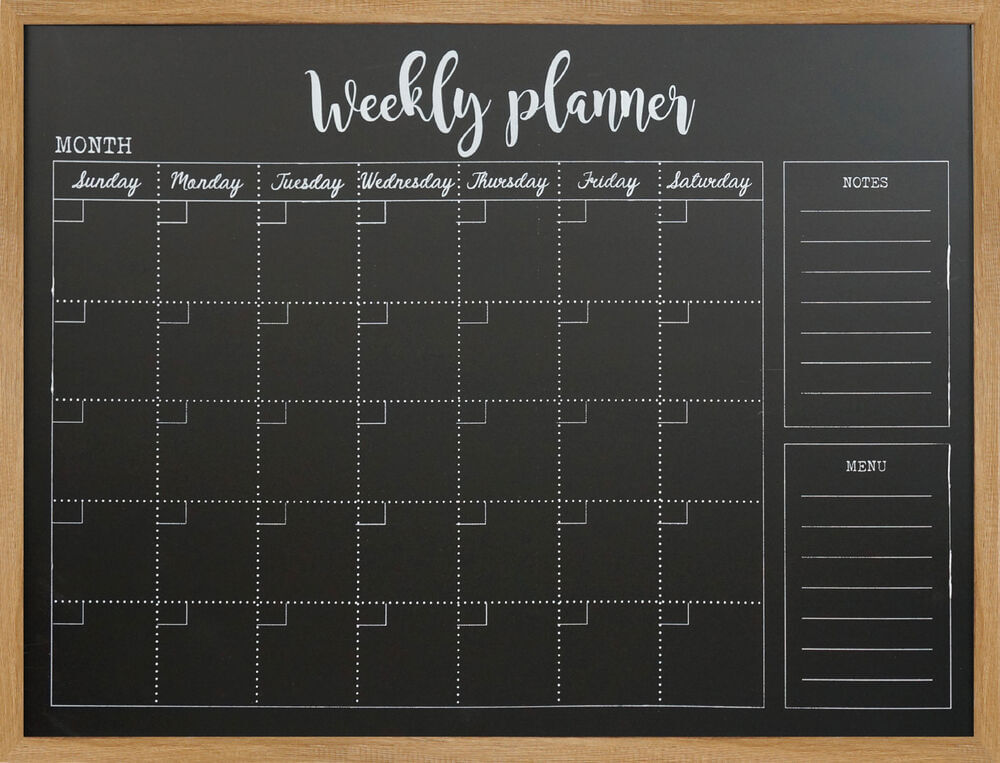 Weekly planner
MONTH
Sunday Monday Tuesday Wednesday Thursday Friday Saturday
NOTES
MENU